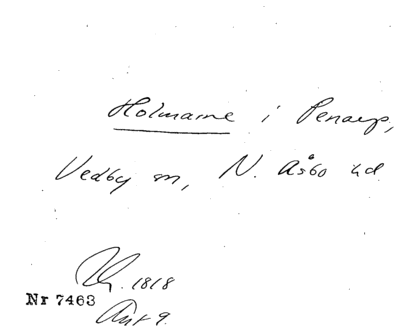 Holmarne i Penarp,
Vedby sn, N. Åsbo hd
1818
Nr 7463
Akt 9.